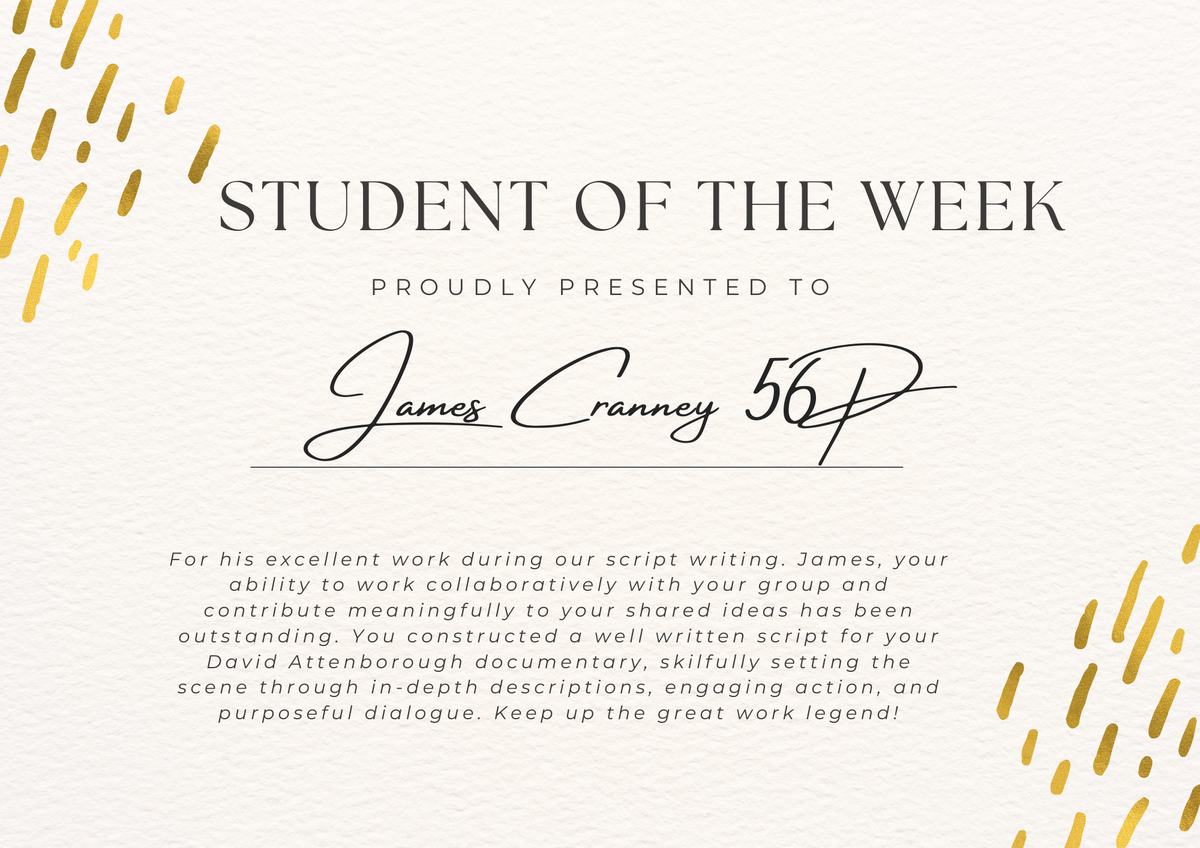 STUDENT OF THE WEEK
PROUDLY PRESENTED TO
James Cranney 56P
For his excellent work during our script writing. James, your
ability to work collaboratively with your group and
contribute meaningfully to your shared ideas has been
outstanding. You constructed a well written script for your
David Attenborough documentary, skilfully setting the
scene through in-depth descriptions, engaging action, and
purposeful dialogue. Keep up the great work legend!